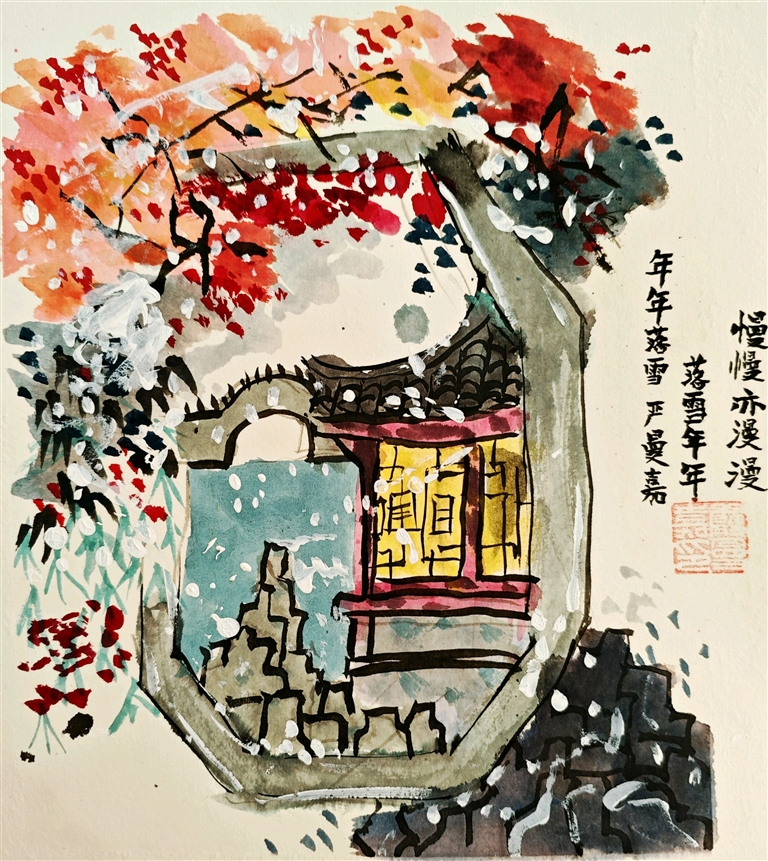 慢慢亦漫漫
落雪年年
年年落雪 严曼嘉